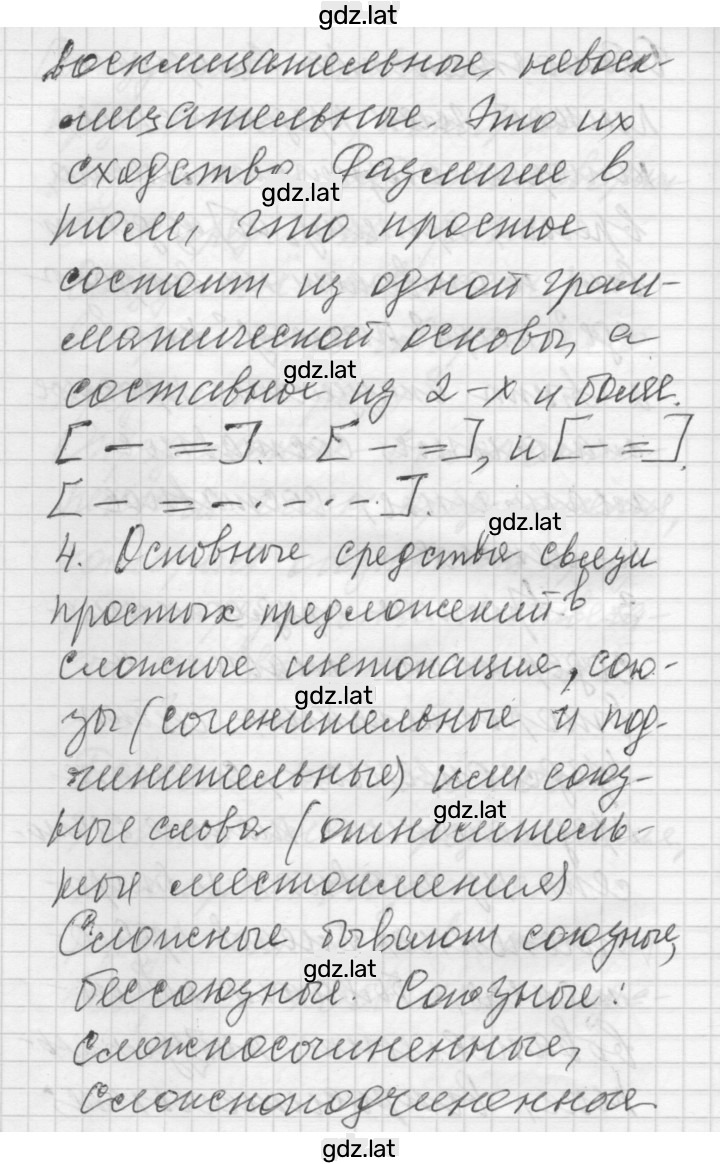 gdz.lat
восклицательные, невоск-
лицательные. Это их
сходство. Различие в
gdz.lat
том, что простые
состоит из одной грам-
матической основы, а
gdz.lat
составные из 2-х и более.
[— =]. [— =], и [— =].
[— = — · — · — ·].
gdz.lat
4. Основные средства связи
простых предложений в
сложные интонация, сою-
gdz.lat
зы (сочинительные и под-
чинительные) или союз-
gdz.lat
ные слова (относитель-
ные местоимения)
Сложные бывают союзные,
gdz.lat
бессоюзные. Союзные:
сложносочиненные,
сложноподчиненные
gdz.lat